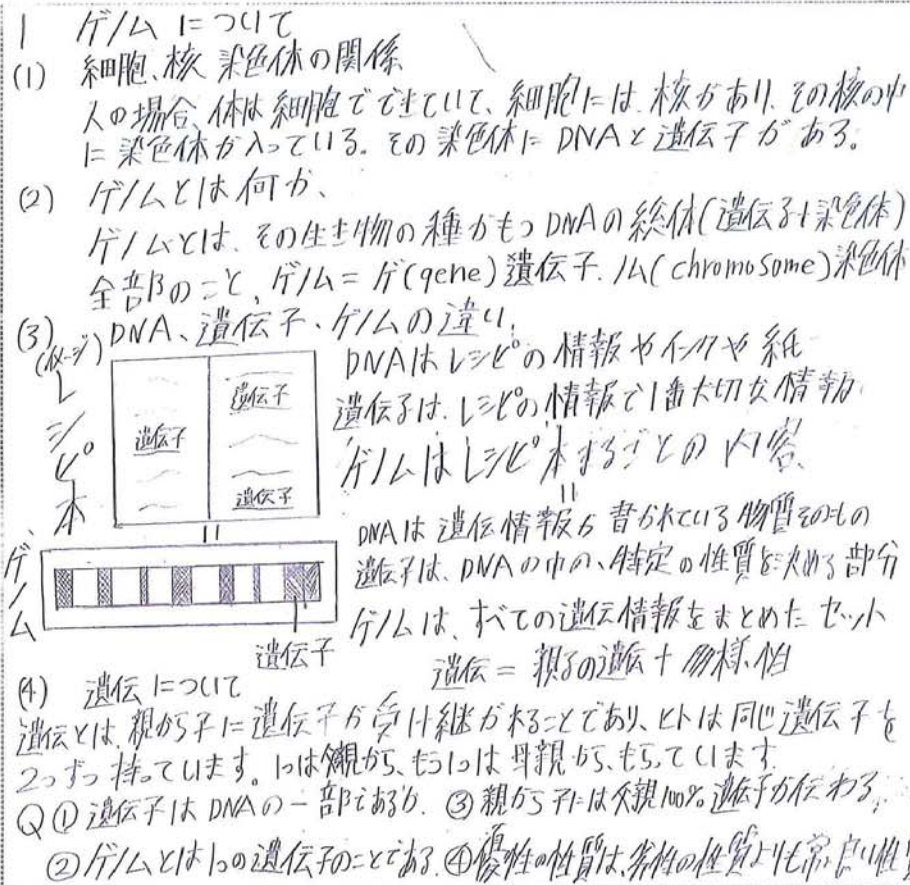 1 ゲノムについて
(1) 細胞、核 染色体の関係
人の場合、体は細胞でできていて、細胞には、核があり、その核の中
に染色体が入っている。その染色体にDNAと遺伝子がある。
(2) ゲノムとは何か、
ゲノムとは、その生き物の種がもつDNAの総体(遺伝子+染色体)
全部のこと、ゲノム=ゲ(gene)遺伝子、ノム(chromosome)染色体
(3) DNA、遺伝子、ゲノムの違い、
(イメージ)
レシピ本
遺伝子
遺伝子
遺伝子
DNAはレシピの情報やインクや紙
遺伝子は、レシピの情報で1番大切な情報
ゲノムはレシピ本まるごとの内容、
=
=
DNAは遺伝情報が書かれている物質そのもの
遺伝子は、DNAの中の、特定の性質を決める部分
ゲノムは、すべての遺伝情報をまとめたセット
ゲノム
遺伝子
遺伝=親子の遺伝+多様性
(4) 遺伝について
遺伝とは、親から子に遺伝子が受け継がれることであり、ヒトは同じ遺伝子を
2つずつ持っています。1つは父親から、もう1つは母親から、もらっています。
Q ① 遺伝子はDNAの一部であるか. ③ 親から子には父親100%遺伝子が伝わる。
② ゲノムとは1つの遺伝子のことである ④ 優性の性質は、劣性の性質よりも常に良い性質